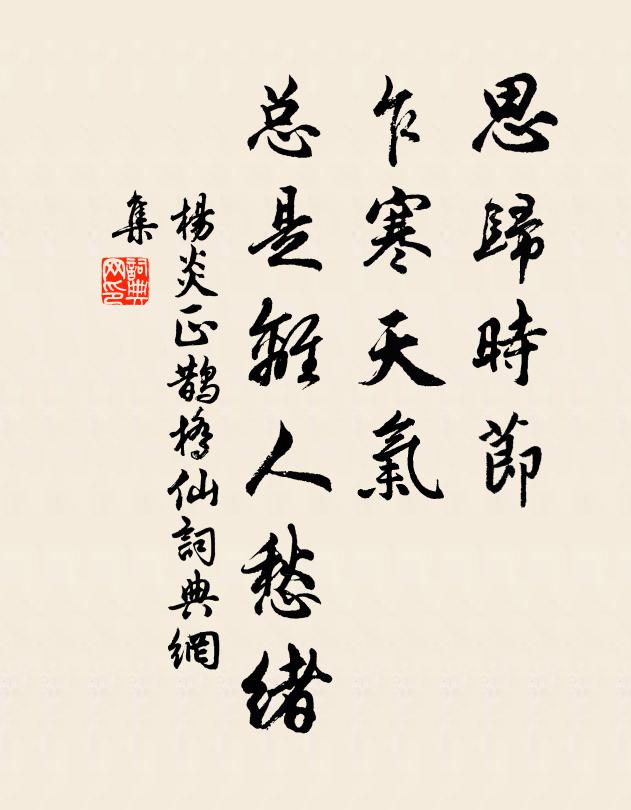 思歸時節
乍寒天氣
总是離人愁緒
楊炎正鵲橋仙詞典網
集
詞典
网印